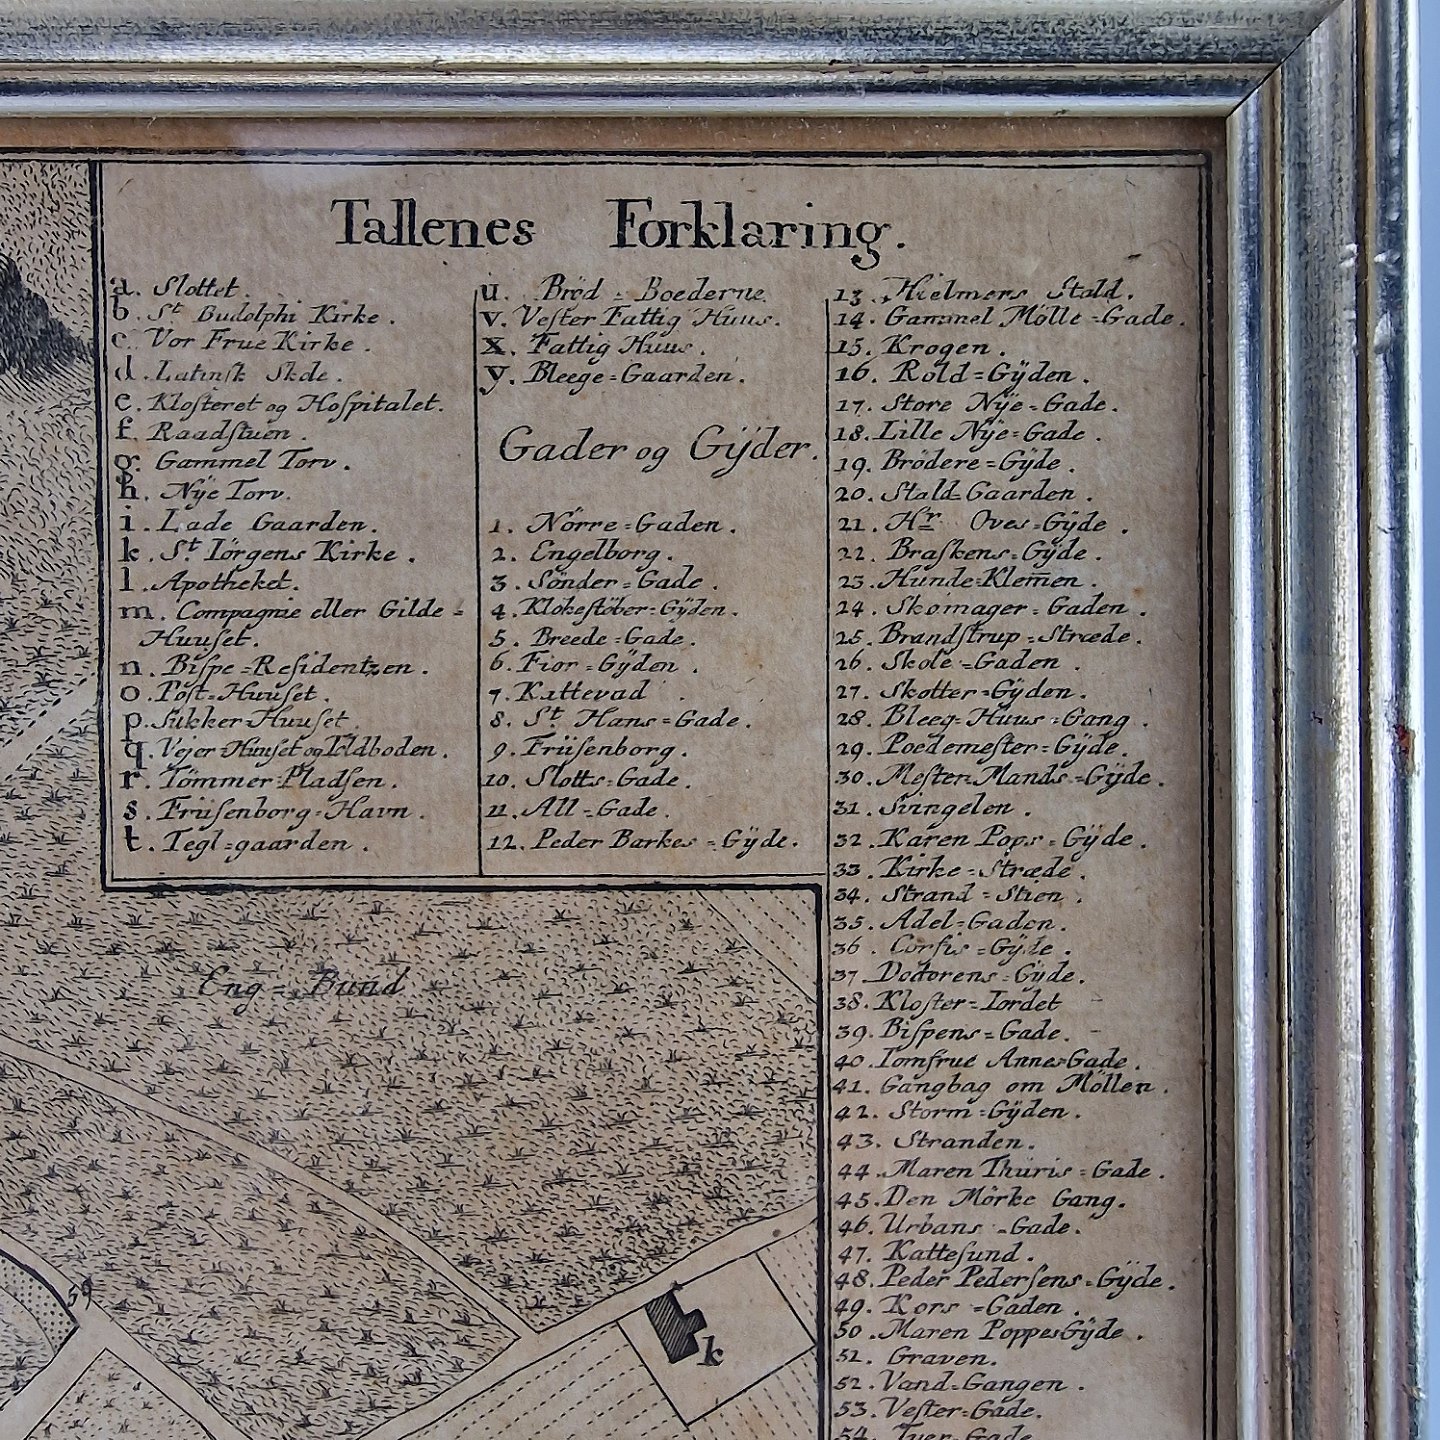 Tallenes Forklaring.
a. Slottet
b. St Budolphi Kirke.
c. Vor Frue Kirke.
d. Latinsk Skole.
e. Kloſteret og Hoſpitalet.
f. Raadſtuen.
g. Gammel Torv.
h. Nÿe Torv.
i. Lade Gaarden.
k. St Iörgens Kirke.
l. Apotheket.
m. Compagnie eller Gilde=
Huuſet.
n. Biſpe=Reſidentzen.
o. Poſt=Huuſet.
p. Sukker=Huuſet.
q. Vejer=Huuſet og Toldboden.
r. Tömmer=Pladſen.
s. Früſenborg=Havn.
t. Tegl=gaarden.
u. Bröd=Boederne.
v. Veſter Fattig Huus.
x. Fattig Huus.
y. Bleege=Gaarden.
Gader og Gÿder.
1. Nörre=Gaden.
2. Engelborg.
3. Sönder=Gade.
4. Klokeſtöber=Gÿden.
5. Breede=Gade.
6. Fior=Gÿden.
7. Kattevad.
8. St Hans=Gade.
9. Früſenborg.
10. Slotts=Gade.
11. All=Gade.
12. Peder Barkes=Gÿde.
13. Hielmers Stald.
14. Gammel Mölle=Gade.
15. Krogen.
16. Rold=Gÿden.
17. Store Nÿe=Gade.
18. Lille Nÿe=Gade.
19. Brödere=Gÿde.
20. Stald=Gaarden.
21. Hr Oves=Gÿde.
22. Braſkens=Gÿde.
23. Hunde=Klem̅en.
24. Skomager=Gaden.
25. Brandſtrup=Stræde.
26. Skole=Gaden.
27. Skotter=Gÿden.
28. Bleeg=Huus=Gang.
29. Poedemeſter=Gÿde.
30. Meſter Mands=Gÿde.
31. Svingelen.
32. Karen Pops=Gÿde.
33. Kirke=Stræde.
34. Strand=Stien.
35. Adel=Gaden.
36. Corfis=Gÿde.
37. Doctorens=Gÿde.
38. Kloſter=Iordet
39. Biſpens=Gade.
40. Iomfrue Annes Gade.
41. Gangbag om Möllen.
42. Storm=Gÿden.
43. Stranden.
44. Maren Thuris=Gade.
45. Den Mörke Gang.
46. Urbans=Gade.
47. Katteſund.
48. Peder Pederſens=Gÿde.
49. Kors=Gaden.
50. Maren Poppes Gÿde.
51. Graven.
52. Vand=Gangen.
53. Veſter=Gade.
54. Tver=Gade
Eng=Bund
59
k